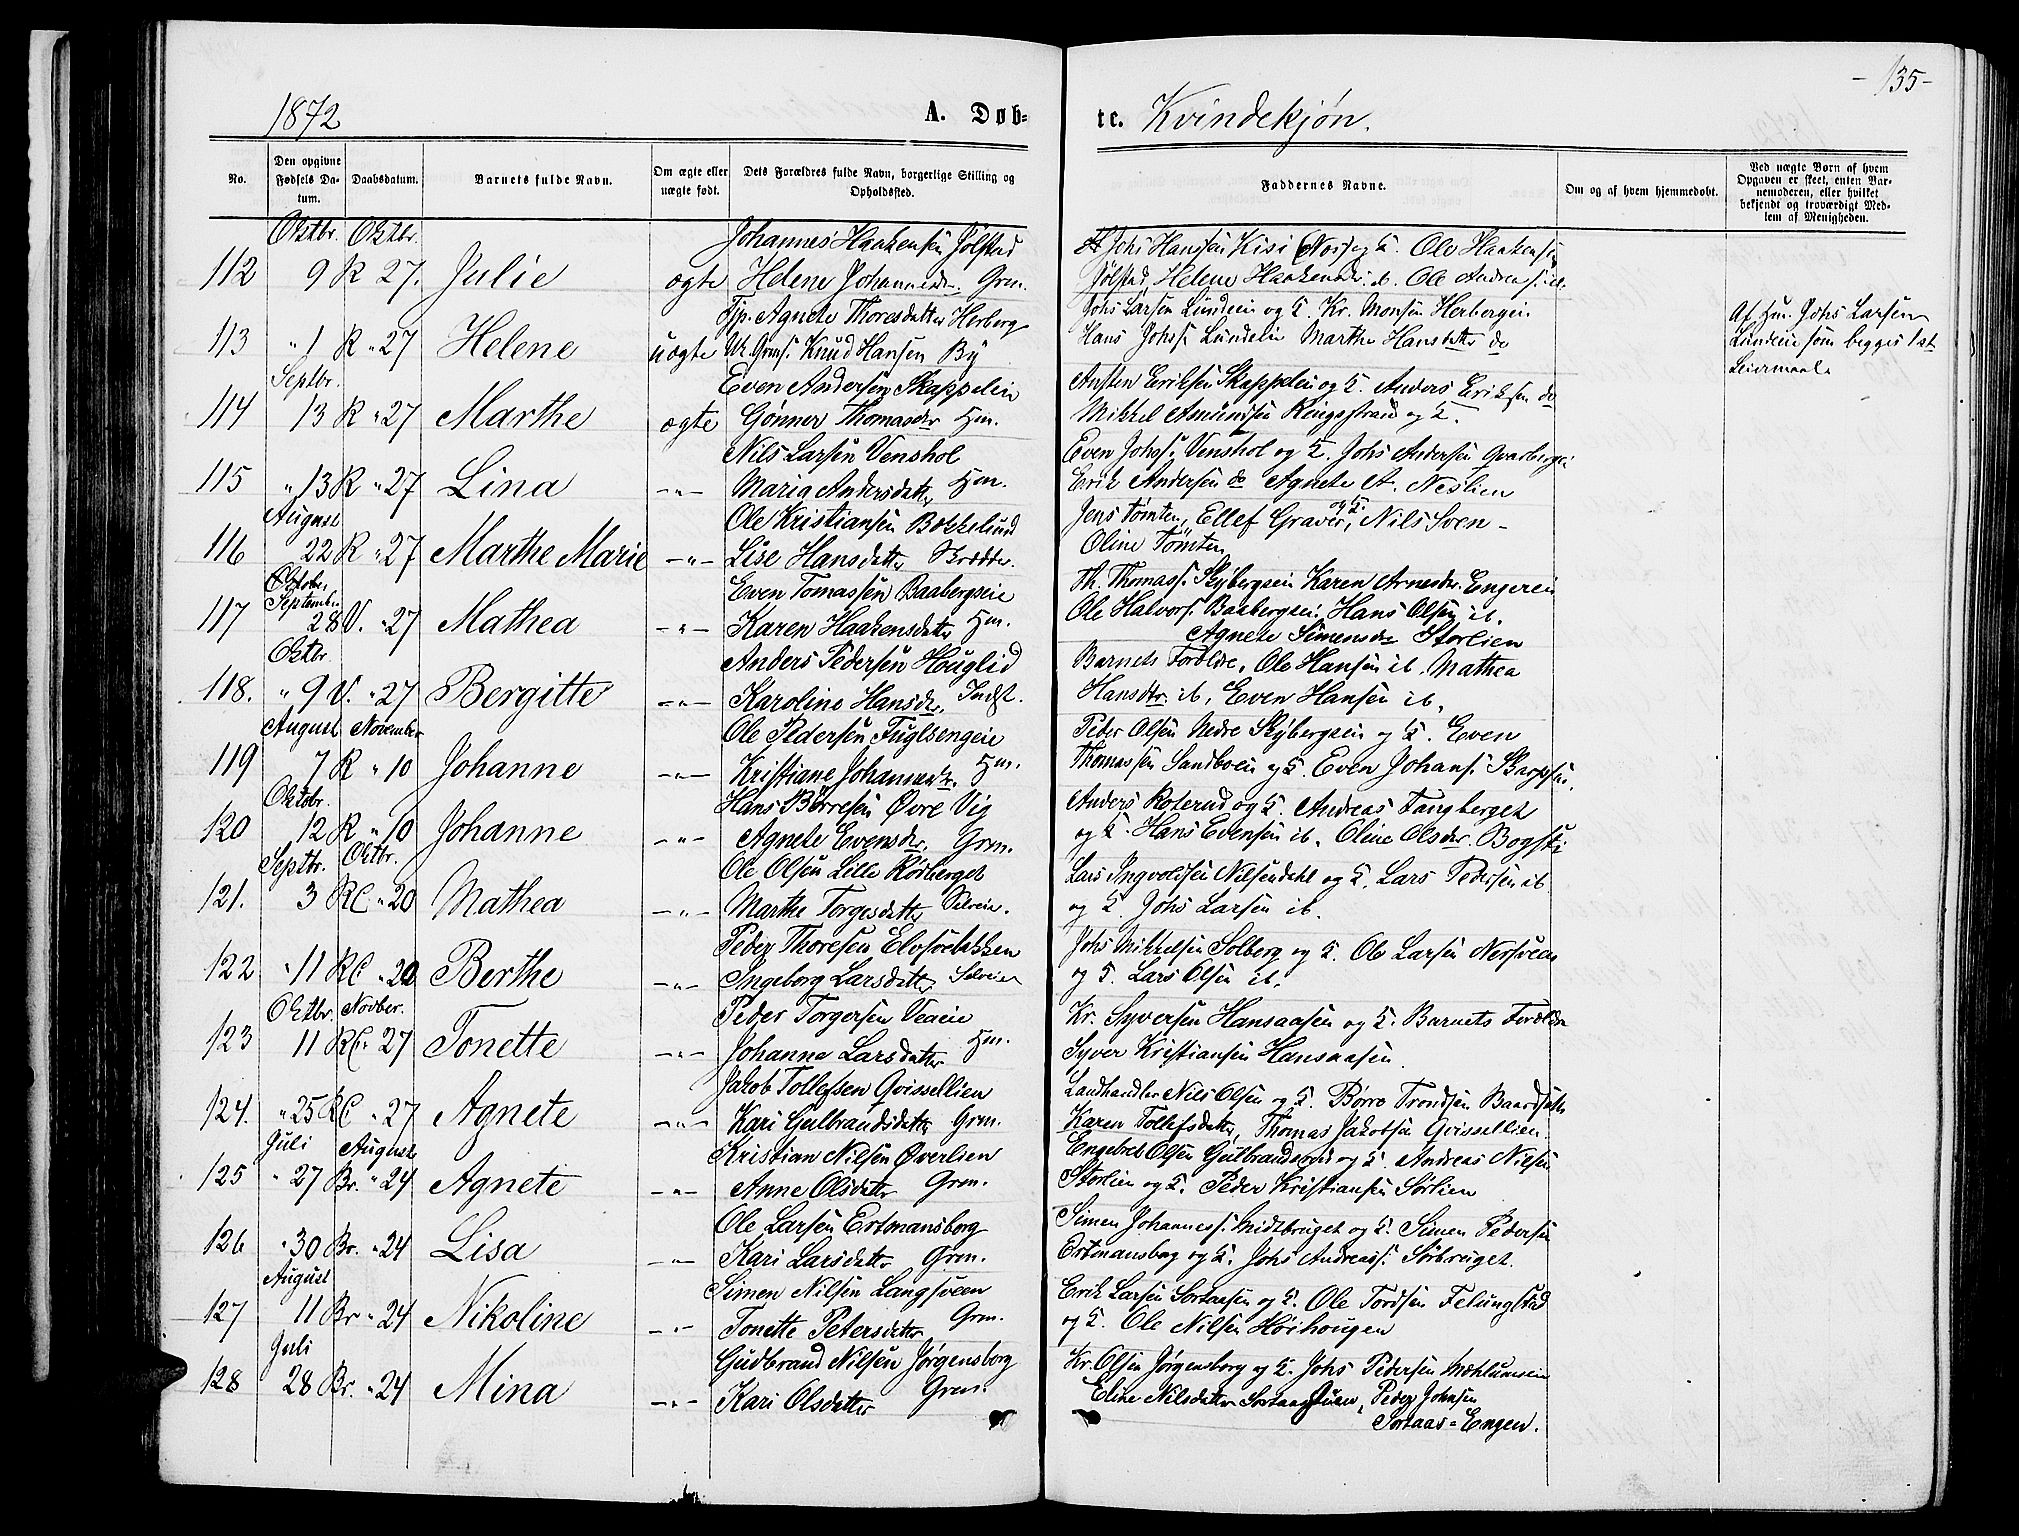 -135-
1872 A. Døb- te. Kvindekjøn.
No. Den opgivne Fødsels Datum. Daabsdatum. Barnets fulde Navn. Om ægte eller uægte født. Dets Forældres fulde Navn, borgerlige Stilling og Opholdssted. Faddernes Navne. Om og af hvem hjemmedøbt. Ved uægte Børn af hvem Opgaven er skeet, enten Barnemoderen, eller hvilket bekjendt og troværdigt Medlem af Menigheden.
Oktbr. Oktbr. Johannes Haakensen Jølstad Johs Hansen Kisi (Nos) og K. Ole Haakensen
112 9 R 27. Julie ægte Helene Johannesdr. Grm. Jølstad, Helene Haakensdr. ib. Ole Andreass. ib.
Tjp. Agnete Thoresdatter Herberg Johs Larsen Lundein og K. Kr. Monsen Herbergein
113 " 1 R " 27 Helene uægte Uk. Grms. Knud Hansen By Hans Johss. Lundein Marthe Hansdatter do Af Hm. Johs Larsen Lundein som begges 1st Leiermaal.
Septbr. Even Andersen Skappelein Austen Eriksen Skappelein og K. Anders Eriksen do
114 13 R " 27 Marthe ægte Gonner Thomasdr Hm. Mikkel Amundsen Ringsstrand og K.
Nils Larsen Venshol Even Johss. Venshol og K. Johs Andersen Qvarbergei
115 " 13 R " 27 Lina -"- Maria Andersdatter Hm. Erik Andersen do Agnete A. Neslien
August Ole Kristiansen Bokkelund Jens Tømten, Ellef Graver, og K. Nils Sven-
116 22 R " 27 Marthe Marie -"- Lise Hansdatter Skrædder. Oline Tømten
Oktobr. Septembr. Even Tomassen Baabergseie Th. Thomass. Skybergsein Karen Arnesdr. Engerein
117 28 V. " 27 Mathea -"- Karen Haakensdatter Hm. Ole Halvors. Baabergsein. Hans Olsen ib.
Agnete Simensdr Storlien
Oktbr. Anders Pedersen Houglid Barnets Forældre, Ole Hansen ib. Mathea
118. " 9 V. " 27 Bergitte -"- Karoline Hansdr. Indst. Hansdtr. ib, Even Hansen ib.
August November Ole Pedersen Fuglsengeie Peder Olsen Nedre Skybergsein og K. Even
119 7 R " 10 Johanne -"- Kristiane Johannesdr. Hm. Thomassen Sandboein og K. Even Johans.
Oktobr. Hans Børresen Øvre Vig Anders Roterud og K. Andreas Tangberget
120 12 R " 10 Johanne -"- Agnete Evensdr. Grm. og K. Hans Evensen ib. Oline Olsdr.
Septbr. Oktbr. Ole Olsen Lille Rødberget Lars Ingvoldsen Nilsendahl og K. Lars Pedersen ib
121. 3 RC " 20 Mathea -"- Marthe Torgesdatter Selveier. og K. Johs Larsen ib.
Peder Thoresen Elvsvebakken Johs Mikkelsen Solberg og K. Ole Larsen Nersveen
122 " 11 RC " 20 Berthe -"- Ingeborg Larsdatter Selveier og K. Lars Olsen ib.
Oktbr. Novber. Peder Torgersen Veaeie Kr. Syversen Hansaasen og K. Barnets Forældre
123 11 RC " 27 Tonette -"- Johanne Larsdatter Hm. Syver Kristiansen Hansaasen.
Jakob Tollefsen Qvissellien Landhandler Nils Olsen og K. Børre Trondsen Baardseth
124. " 25 RC " 27 Agnete -"- Kari Gulbrandsdatter Grm. Karen Tollefsdatter, Thomas Jakobsen Qvissellien.
Juli August Kristian Nilsen Øverlien Engebret Olsen Gulbrandsrud og K. Andreas Nielsen
125 " 27 Br. " 24 Agnete -"- Anne Olsdatter Grm. Storlien og K. Peder Kristiansen Sørlien
Ole Larsen Ertmansborg Simen Johanness. Midtbruget og K. Simen Pedersen
126 " 30 Br. " 24 Lisa -"- Kari Larsdatter Grm. Ertmansborg og K. Johs Andreass. Sørbruget.
August Simen Nilsen Langsveen Erik Larsen Sortaasen og K. Ole Tordsen
127 11 Br " 24 Nikoline -"- Tonette Petersdatter Grm. og K. Ole Nilsen Høihougen
Juli Gudbrand Nilsen Jørgensborg Kr. Olsen Jørgensborg og K. Johs Pedersen
128 28 Br. " 24 Mina -"- Kari Olsdatter Grm. Eline Nilsdatter Peder Johnsen
Sortaas-Engen.